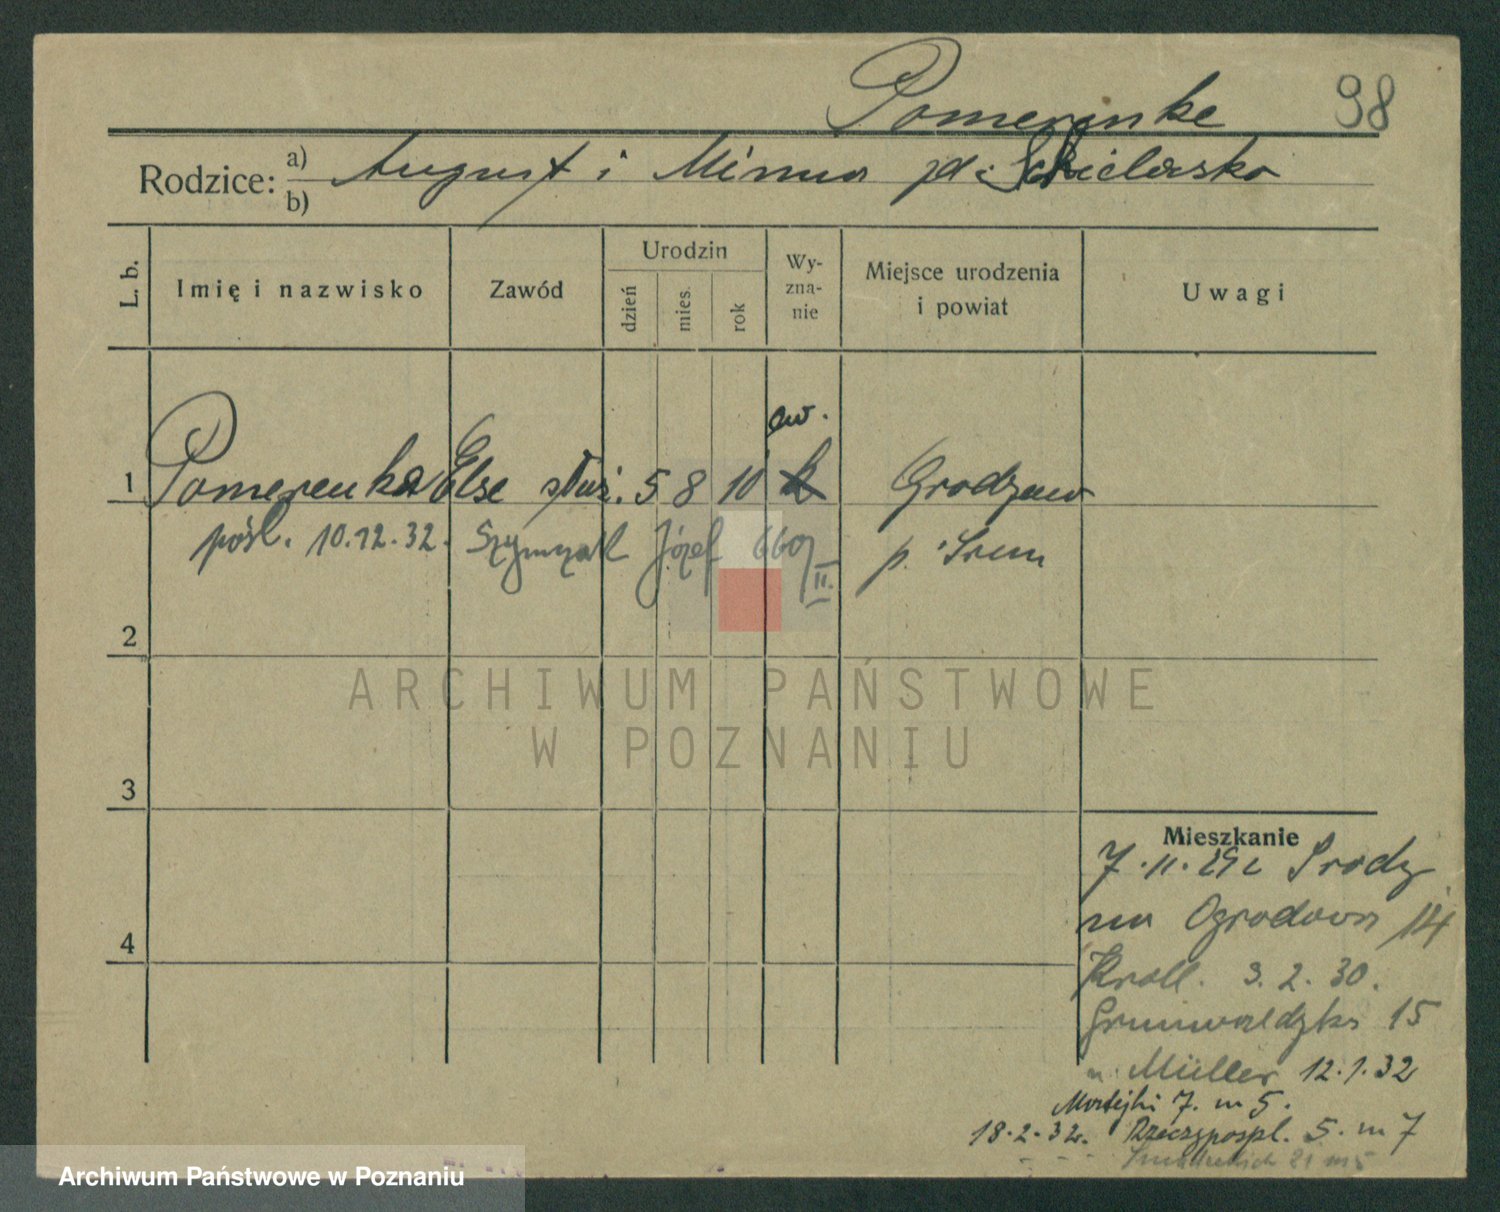 Pomerenke 98
Rodzice: a) August i Minna zd.
b)
L. b. Imię i nazwisko Zawód Urodzin dzień mies. rok Wy-zna-nie Miejsce urodzenia i powiat Uwagi
ew.
1 Pomerenke Else służ. 5 8 10 k Grodzew
pośl. 10.12.32. Szymczak Józef 6607 II. p. Śrem
2
ARCHIWUM PAŃSTWOWE
W POZNANIU
3
Mieszkanie
7.11.29 z Środy
na Ogrodowa 14
Kroll. 3.2.30.
Grunwaldzka 15
u. Müller 12.1.32
4
Matejki 7. m 5.
18.2.32. Rzeczypospl. 5. m 7
21 m 5
Archiwum Państwowe w Poznaniu